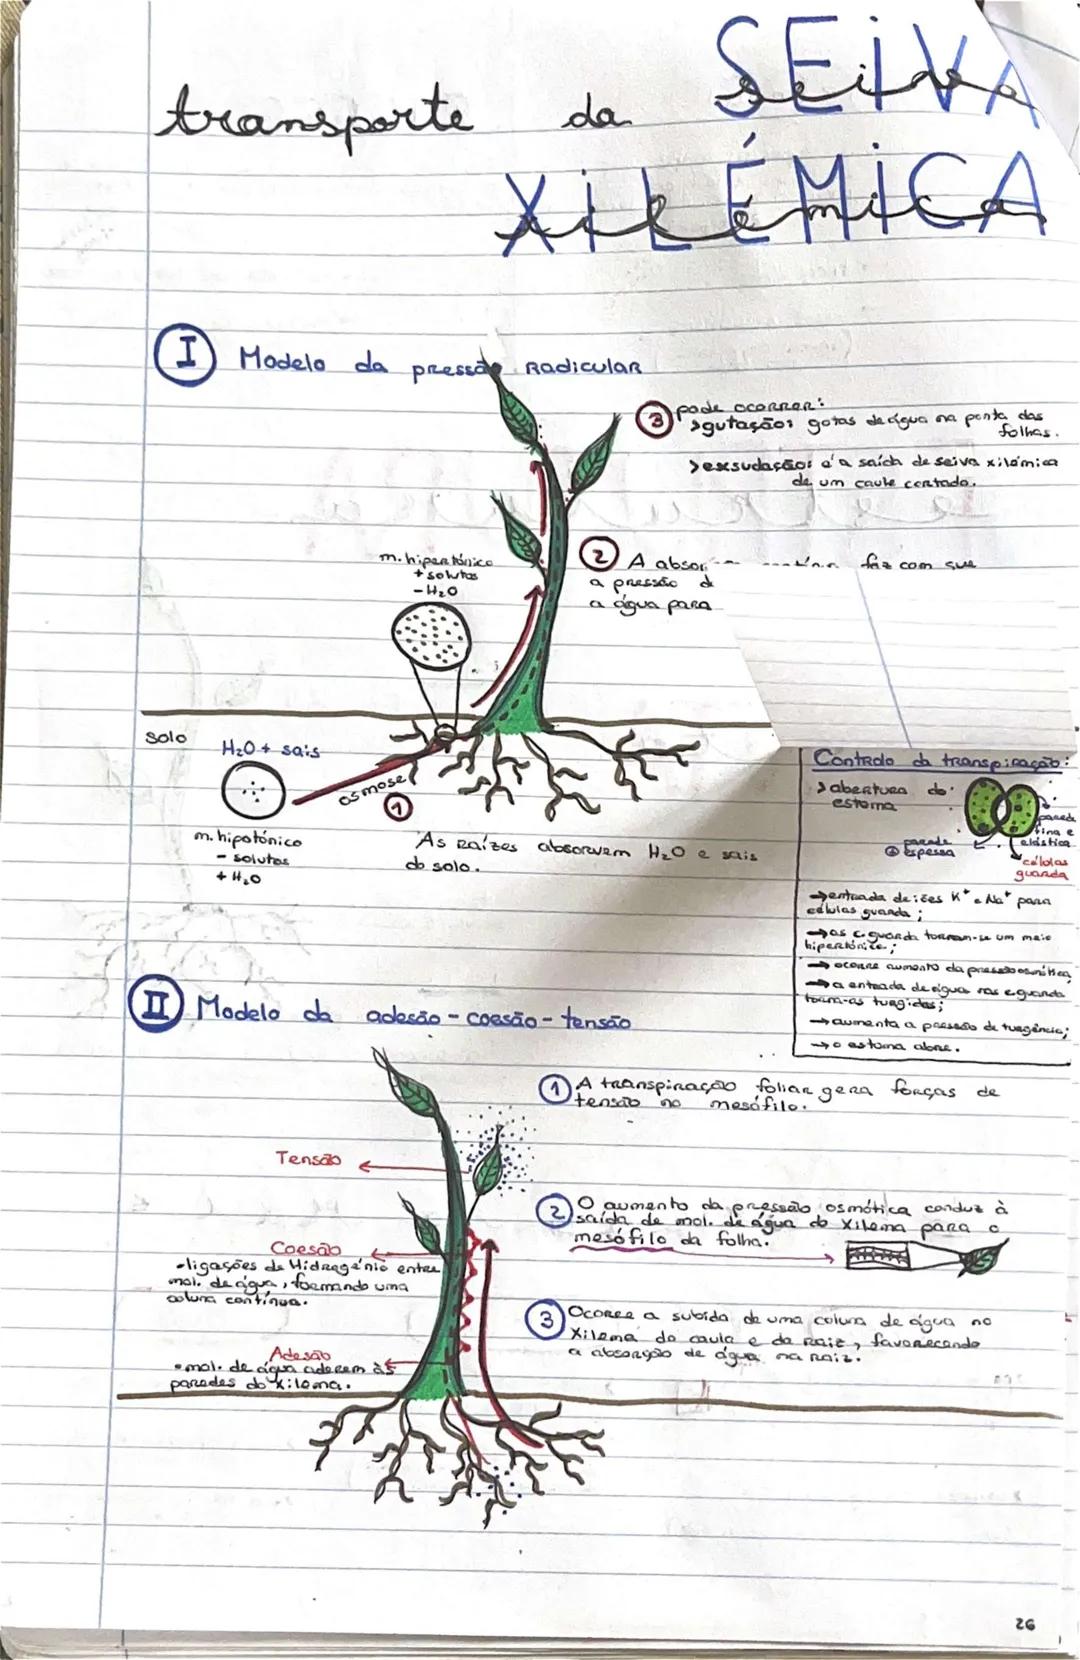 transporte da SEIVA
seiva
XILÉMICA
xilémica
I Modelo da pressão Radicular
3 pode ocorrer:
>gutação: gotas de água na ponta das
folhas.
>exsudação: é a saída de seiva xilémica
de um caule cortado.
m. hipertónico
+ solutos
- H₂O
2 A absor faz com que
a pressão d
a água para
solo
H₂O + sais
osmose
1
m. hipotónico
- solutos
+ H₂O
As Raízes absorvem H₂O e sais
do solo.
Controlo da transpiração:
>abertura do
estoma
parede
espessa
parede
fina e
elástica
células
guarda
→entrada de iões K⁺ e Na⁺ para
células guarda;
→as c. guarda tornam-se um meio
hipertónico;
→ocorre aumento da pressão osmótica,
→a entrada de água nas c. guarda
torna-as turgidas;
→aumenta a pressão de turgência;
→o estoma abre.
II Modelo da adesão-coesão-tensão
1 A transpiração foliar gera forças de
tensão no mesófilo.
Tensão
2 O aumento da pressão osmótica conduz à
saída de mol. de água do Xilema para o
mesófilo da folha.
Coesão
•ligações de Hidrogénio entre
mol. de água, formando uma
coluna contínua.
3 Ocorre a subida de uma coluna de água no
Xilema do caule e da raiz, favorecendo
a absorção de água na raiz.
Adesão
•mol. de água aderem às
paredes do xilema.
26